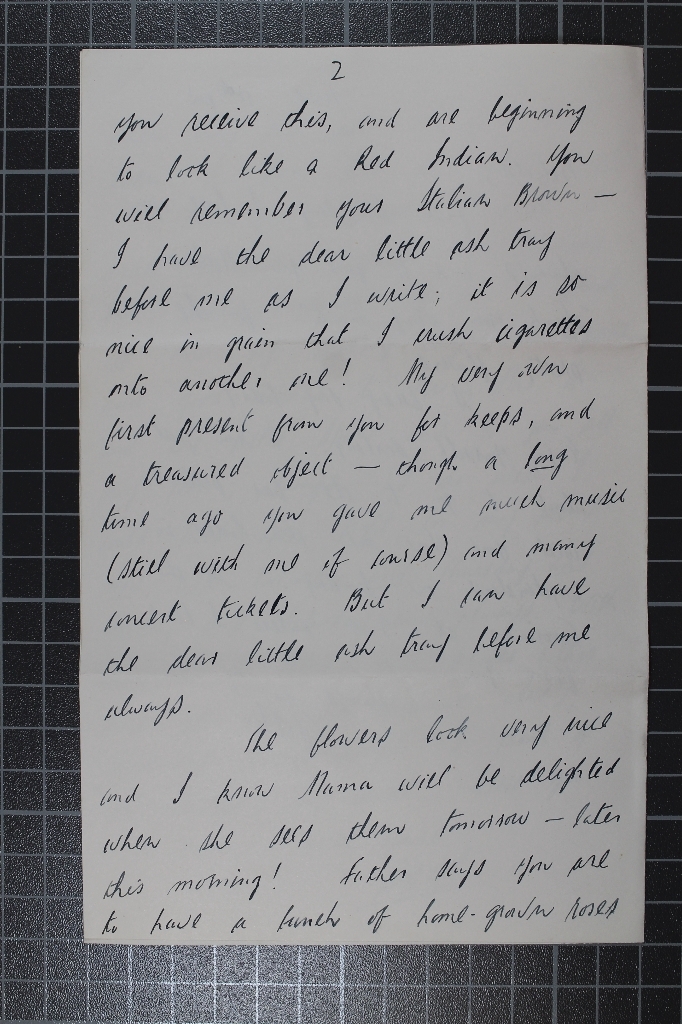 2
you receive this, and are beginning
to look like a Red Indian. You
will remember your Italian Brown —
I have the dear little ash tray
before me as I write; it is so
nice in grain that I crush cigarettes
into another one! My very own
first present from you for keeps, and
a treasured object — though a long
time ago you gave me much music
(still with me of course) and many
concert tickets. But I can have
the dear little ash tray before me
always.
The flowers look very nice
and I know Mama will be delighted
when she sees them tomorrow — later
this morning! Father says you are
to have a bunch of home-grown roses